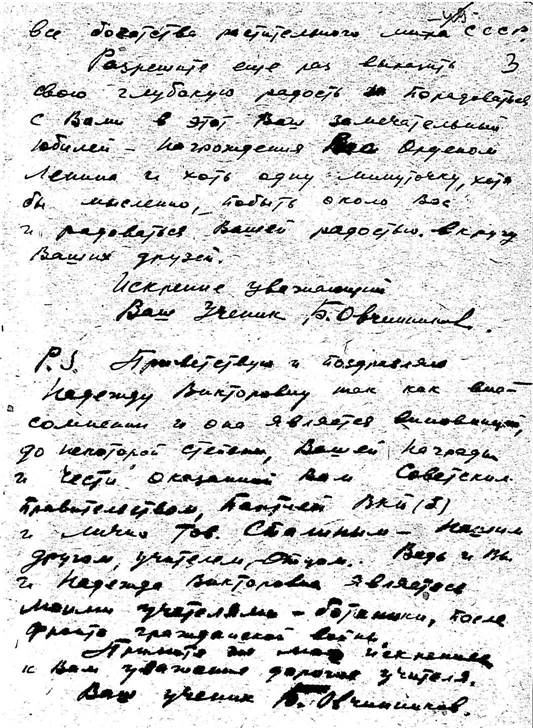 все богатства растительного мира СССР.
Разрешите еще раз выразить 3
свою глубокую радость и порадоваться
с Вами в этот Ваш замечательный
юбилей – награждения Вас Орденом
Ленина и хоть одну минуточку, хотя
бы мысленно, побыть около Вас
и радоваться Вашей радостью в кругу
Ваших друзей.
Искренне уважающий
Ваш Ученик Б. Овчинников.
P.S. Приветствую и поздравляю
Надежду Викторовну так как вне
сомнения и она является виновницей,
до некоторой степени, Вашей награды
и чести оказанной Вам Советским
правительством, Партией ВКП(б)
и лично Тов. Сталиным – нашим
другом, учителем, Отцом. Ведь и Вы
и Надежда Викторовна являетесь
моими учителями – ботаники, после
фронта гражданской войны.
Примите же мое искреннее
к Вам уважение дорогие учителя.
Ваш ученик Б. Овчинников.